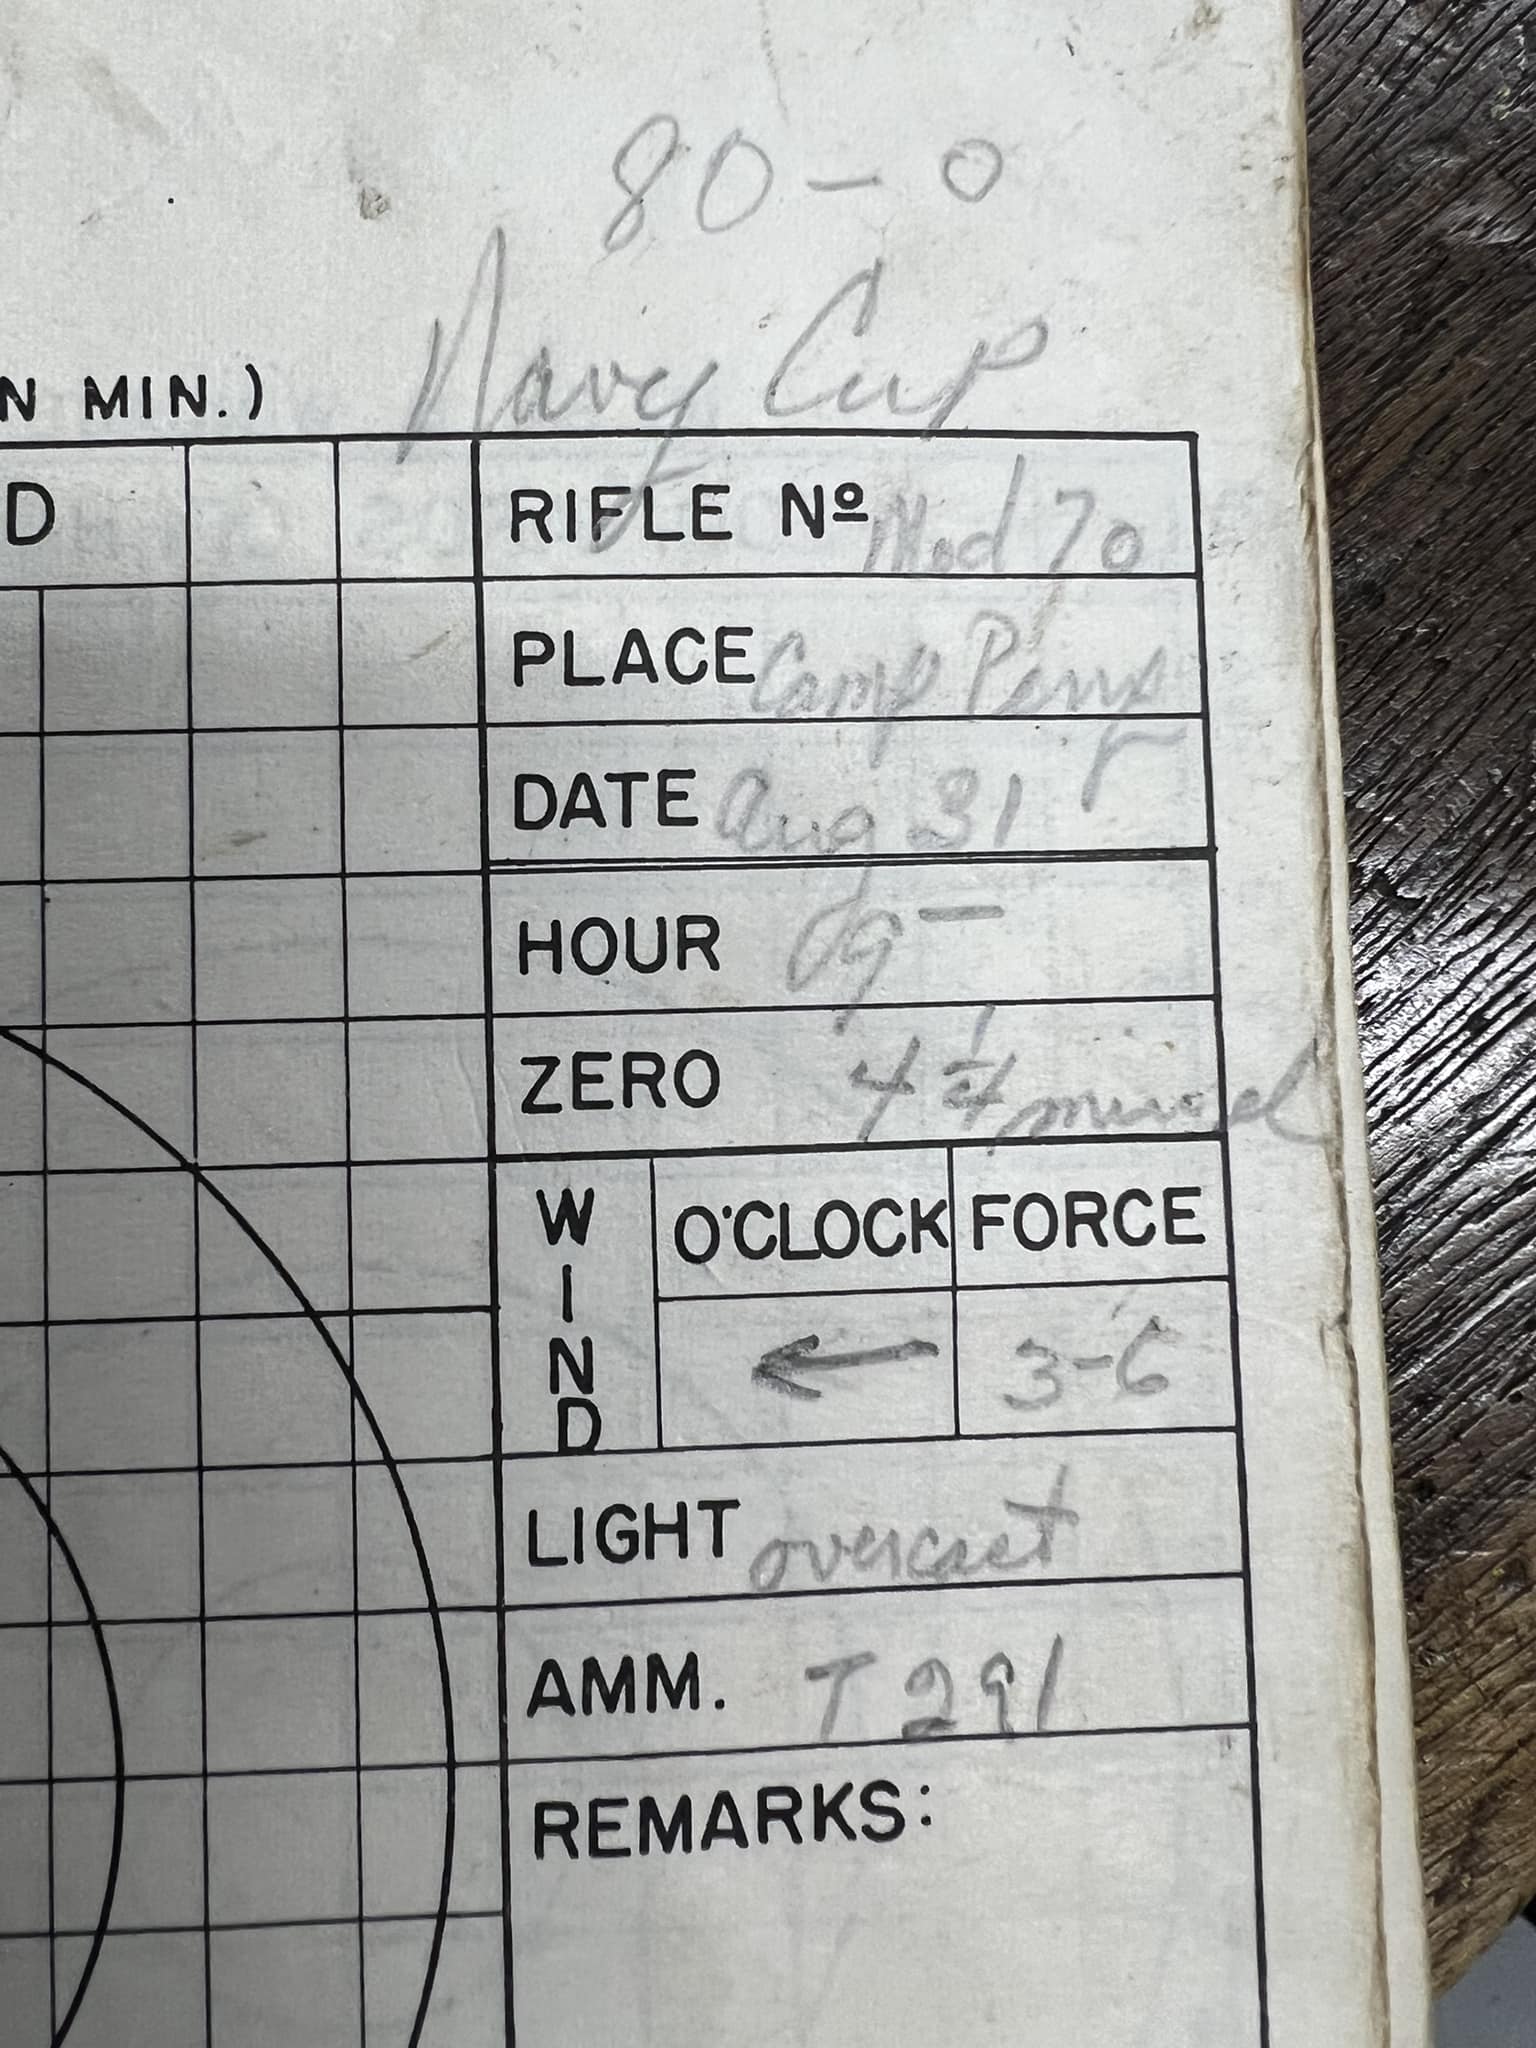 80 - 0
Navy Cup
N MIN.)
D
RIFLE Nº Mod 70
PLACE Camp Perry
DATE Aug 31
HOUR 09 —
ZERO 4 1/4
WIND
O'CLOCK FORCE
← 3-6
LIGHT overcast
AMM. T 291
REMARKS: